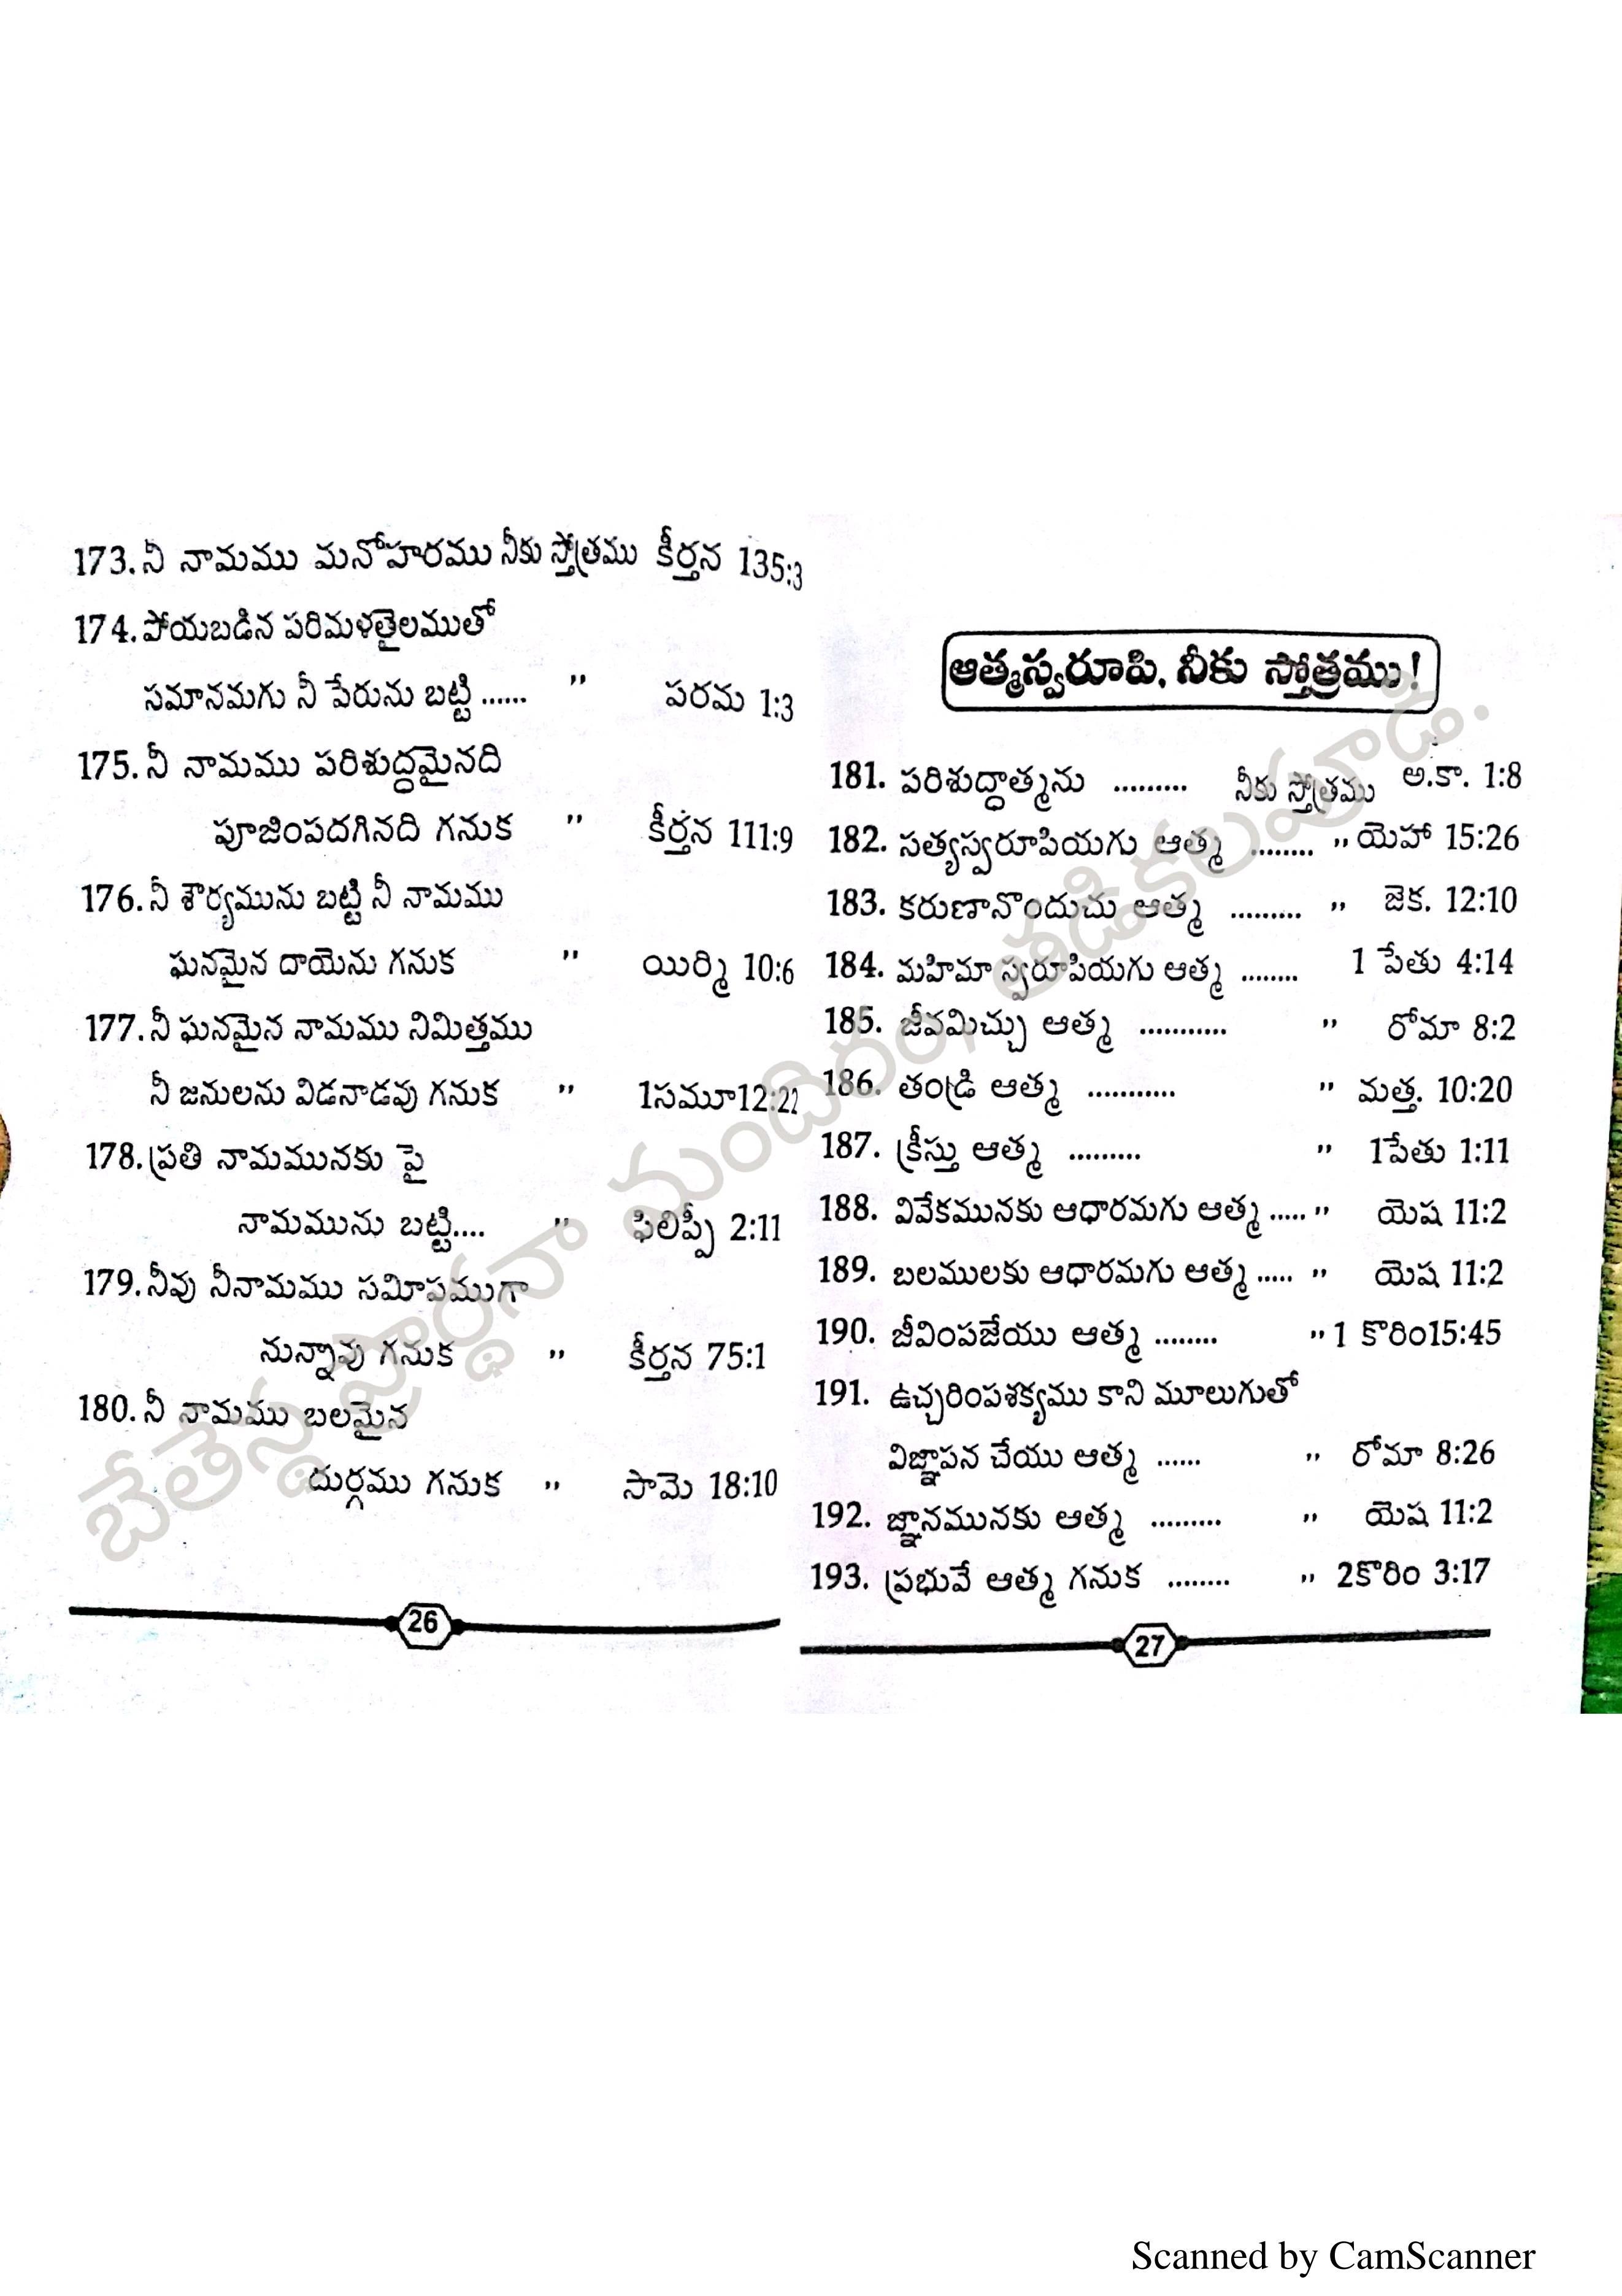 173. నీ నామము మనోహరము నీకు స్తోత్రము కీర్తన 135:3
174. పోయబడిన పరిమళతైలముతో
సమానమగు నీ పేరును బట్టి ...... ,, పరమ 1:3
175. నీ నామము పరిశుద్ధమైనది
పూజింపదగినది గనుక ,, కీర్తన 111:9
176. నీ శౌర్యమును బట్టి నీ నామము
ఘనమైన దాయెను గనుక ,, యిర్మి 10:6
177. నీ ఘనమైన నామము నిమిత్తము
నీ జనులను విడనాడవు గనుక ,, 1సమూ12:22
178. ప్రతి నామమునకు పై
నామమును బట్టి.... ,, ఫిలిప్పీ 2:11
179. నీవు నీనామము సమీపముగా
నున్నావు గనుక ,, కీర్తన 75:1
180. నీ నామము బలమైన
దుర్గము గనుక ,, సామె 18:10
26
ఆత్మస్వరూపి, నీకు స్తోత్రము!
181. పరిశుద్ధాత్మను ......... నీకు స్తోత్రము అ.కా. 1:8
182. సత్యస్వరూపియగు ఆత్మ ........ ,, యెహా 15:26
183. కరుణానొందుచు ఆత్మ ......... ,, జెక. 12:10
184. మహిమా స్వరూపియగు ఆత్మ ........ 1 పేతు 4:14
185. జీవమిచ్చు ఆత్మ ........... ,, రోమా 8:2
186. తండ్రి ఆత్మ ........... ,, మత్త. 10:20
187. క్రీస్తు ఆత్మ ......... ,, 1పేతు 1:11
188. వివేకమునకు ఆధారమగు ఆత్మ ..... ,, యెష 11:2
189. బలములకు ఆధారమగు ఆత్మ ..... ,, యెష 11:2
190. జీవింపజేయు ఆత్మ ........ ,, 1 కొరిం15:45
191. ఉచ్చరింపశక్యము కాని మూలుగుతో
విజ్ఞాపన చేయు ఆత్మ ...... ,, రోమా 8:26
192. జ్ఞానమునకు ఆత్మ ......... ,, యెష 11:2
193. ప్రభువే ఆత్మ గనుక ........ ,, 2కొరిం 3:17
27
బేతెస్థ ప్రార్థనా మందిరం, తడికలపూడి.
Scanned by CamScanner